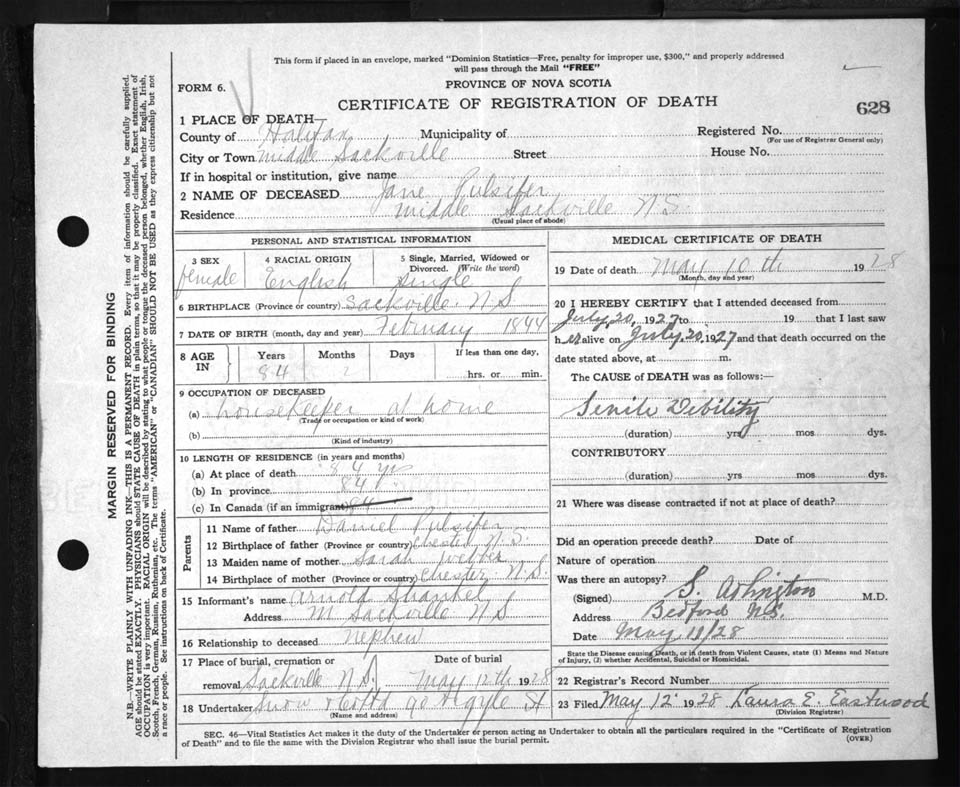 This form if placed in an envelope, marked "Dominion Statistics—Free, penalty for improper use, $300," and properly addressed
will pass through the Mail "FREE"
FORM 6.
PROVINCE OF NOVA SCOTIA
CERTIFICATE OF REGISTRATION OF DEATH
628
1 PLACE OF DEATH—
County of Halifax Municipality of Registered No.
(For use of Registrar General only)
City or Town Middle Sackville Street House No.
If in hospital or institution, give name
2 NAME OF DECEASED Jane Pulsifer
Residence Middle Sackville N.S.
(Usual place of abode)
PERSONAL AND STATISTICAL INFORMATION
3 SEX 4 RACIAL ORIGIN 5 Single, Married, Widowed or
Divorced. (Write the word)
female English Single
6 BIRTHPLACE (Province or country) Sackville N.S.
7 DATE OF BIRTH (month, day and year) February 1844
8 AGE IN Years Months Days If less than one day,
84 2 hrs. or min.
9 OCCUPATION OF DECEASED
(a) housekeeper at home
(Trade or occupation or kind of work)
(b)
(Kind of industry)
10 LENGTH OF RESIDENCE (in years and months)
(a) At place of death 84 yrs
(b) In province 84
(c) In Canada (if an immigrant) 84
Parents
11 Name of father Daniel Pulsifer
12 Birthplace of father (Province or country) Chester N.S.
13 Maiden name of mother Sarah Webber
14 Birthplace of mother (Province or country) Chester N.S.
15 Informant's name Arnold
Address M Sackville N.S
16 Relationship to deceased Nephew
17 Place of burial, cremation or Date of burial
removal Sackville N.S. May 12th 1928
18 Undertaker Snow & Co Ltd 90 Argyle St
(Name and address)
MEDICAL CERTIFICATE OF DEATH
19 Date of death May 10th 1928
(Month, day and year)
20 I HEREBY CERTIFY that I attended deceased from
July, 20, 1927 to 19 that I last saw
her alive on July, 20, 1927 and that death occurred on the
date stated above, at m.
The CAUSE of DEATH was as follows:
Senile Debility
(duration) yrs mos dys.
CONTRIBUTORY
(duration) yrs mos dys.
21 Where was disease contracted if not at place of death?
Did an operation precede death? Date of
Nature of operation
Was there an autopsy?
(Signed) S. M.D.
Address Bedford N.S.
Date May 11/28
State the Disease causing Death, or in death from Violent Causes, state (1) Means and Nature
of Injury, (2) whether Accidental, Suicidal or Homicidal.
22 Registrar's Record Number
23 Filed May 12 1928 Laura E. Eastwood
(Division Registrar)
SEC. 46—Vital Statistics Act makes it the duty of the Undertaker or person acting as Undertaker to obtain all the particulars required in the "Certificate of Registration
of Death" and to file the same with the Division Registrar who shall issue the burial permit.
(OVER)
MARGIN RESERVED FOR BINDING
N.B.—WRITE PLAINLY WITH UNFADING INK—THIS IS A PERMANENT RECORD. Every item of information should be carefully supplied.
AGE should be stated EXACTLY. PHYSICIANS should STATE CAUSE OF DEATH in plain terms, so that it may be properly classified. Exact statement of
OCCUPATION is very important. RACIAL ORIGIN will be described by stating to what people or tongue the deceased person belonged, whether English, Irish,
Scotch, French, German, Russian, Ruthenian, etc. The terms "AMERICAN" or "CANADIAN" SHOULD NOT BE USED as they express citizenship but not
a race or people. See instructions on back of Certificate.